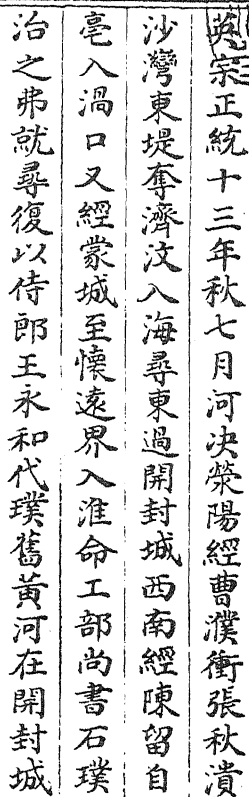 英宗正統十三年秋七月河決滎陽經曹濮衝張秋潰
沙灣東堤奪濟汶入海尋東過開封城西南經陳留自
亳入渦口又經蒙城至懷遠界入淮命工部尚書石璞
治之弗就尋復以侍郎王永和代璞舊黃河在開封城